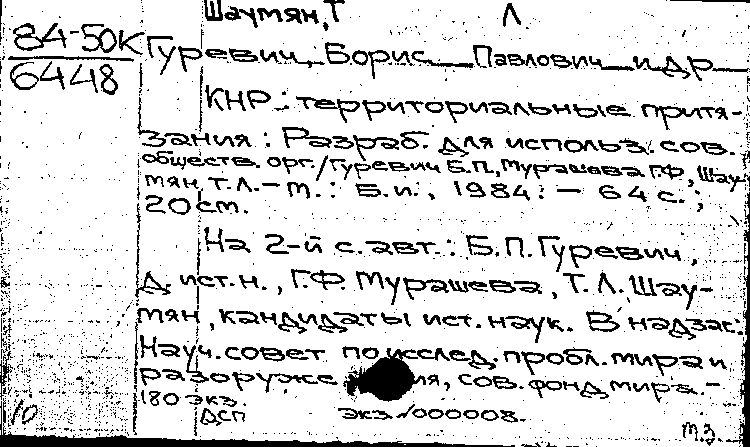 Шаумян, Т Л
84-50К
6448
Гуревич, Борис Павлович и др
КНР: территориальные притя-
зания: Разраб. для использ. сов.
обществ. орг./Гуревич Б.П., Мурашева Г.Ф., Шау-
мян Т.Л. - М.: Б.и., 1984. - 64 с.;
20 см.
На 2-й с. авт.: Б.П. Гуревич,
д. ист. н., Г.Ф. Мурашева, Т.Л. Шау-
мян, кандидаты ист. наук. В надзаг:
Науч. совет по исслед. пробл. мира и
разоруже ия, сов. фонд мира. -
180 экз.
ДСП экз. 000008.
10
м.з